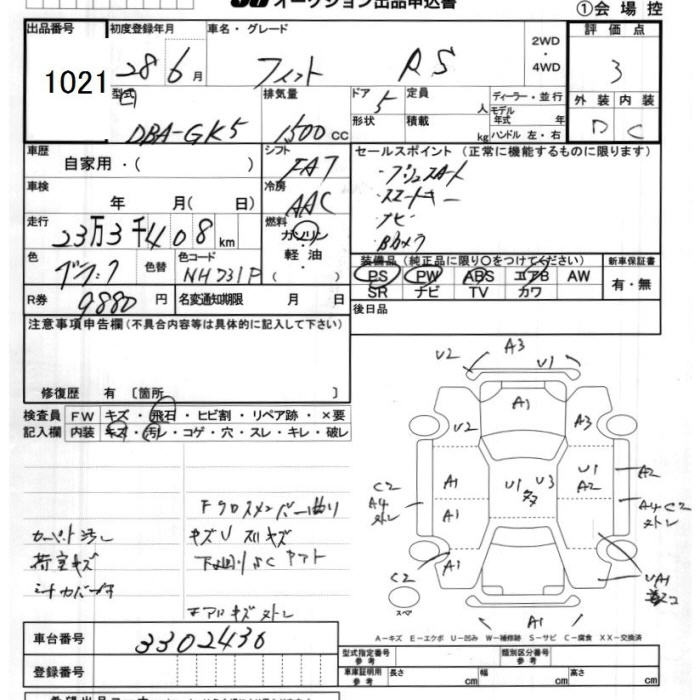 オークション出品申込書
①会場控
出品番号 初度登録年月 車名・グレード 2WD・4WD 評価点
1021 28年6月 フィット RS 3
型式 排気量 ドア 定員 ディーラー・並行 外装 内装
DBA-GK5 1500cc 5 人 モデル年式 年式 D C
形状 積載 kg ハンドル 左・右
車歴 シフト セールスポイント(正常に機能するものに限ります)
自家用・( ) FA7 ・プッシュスタート
車検 冷房 ・スマートキー
年 月( 日) AAC ・ナビ
走行 燃料 ・Bカメラ
23万3千408km ガソリン・軽油・( )
色 色替 色コード 装備品(純正品に限り○をつけてください) 新車保証書
ブラック NH731P PS PW ABS エアB AW 有・無
R券 9880円 名変通知期限 月 日 SR ナビ TV カワ
注意事項申告欄(不具合内容等は具体的に記入して下さい) 後日品
修復歴 有〔箇所 〕
検査員 FW キズ・飛石・ヒビ割・リペア跡・×要
記入欄 内装 キズ・汚レ・コゲ・穴・スレ・キレ・破レ
U2 A3 U1
A1
U2 A3
A1 U1 U3 U1 A2 A2
C2 A4 A1 A4 C2
A1
C2 UA1
スペ A1
Fクロスメンバー曲り
カーペット汚レ キズU スリキズ
荷室キズ
A−キズ E−エクボ U−凹み W−補修跡 S−サビ C−腐食 XX−交換済
車台番号 3302436 型式指定番号 参考 類別区分番号 参考
登録番号 車庫証明用 参考 長さ cm 幅 cm 高さ cm